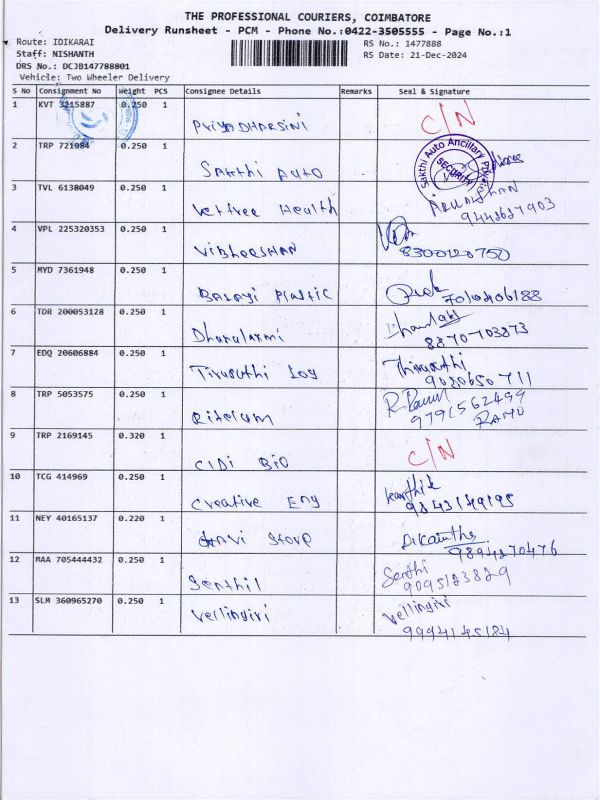 THE PROFESSIONAL COURIERS, COIMBATORE
Delivery Runsheet - PCM - Phone No.:0422-3505555 - Page No.:1
Route: IDIKARAI
RS No.: 1477888
Staff: NISHANTH
RS Date: 21-Dec-2024
DRS No.: DCJB147788801
Vehicle: Two Wheeler Delivery
S No Consignment No Weight PCS Consignee Details Remarks Seal & Signature
1 KVT 3215887 0.250 1
PriyaDharsini C/N
2 TRP 721984 0.250 1
Sakthi Auto
Sakthi Auto Ancillary
SECURITY
3 TVL 6138049 0.250 1
Vettree Health
9442627903
4 VPL 225320353 0.250 1
8300120750
5 MYD 7361948 0.250 1
Balaji Plastic
7010206188
6 TDR 200053128 0.250 1
Dhanalaxmi
8870703873
7 EDQ 20606884 0.250 1
8 TRP 5053575 0.250 1
9791562499
RAMU
9 TRP 2169145 0.320 1
CIDI BIO C/N
10 TCG 414969 0.250 1
Creative Eng Karthik
9843149195
11 NEY 40165137 0.220 1
9894270476
12 MAA 705444432 0.250 1
Senthil Senthi
9095123829
13 SLM 360965270 0.250 1
Vellingiri Vellingiri
9994145184